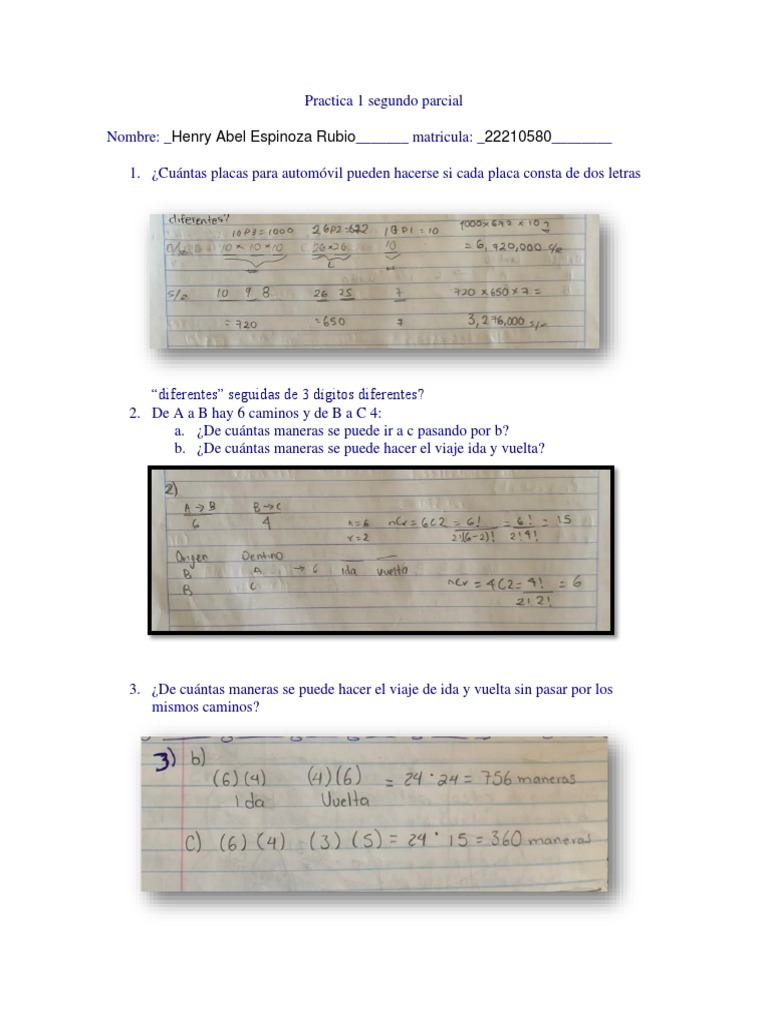 Practica 1 segundo parcial
Nombre: _Henry Abel Espinoza Rubio_______ matricula: _22210580________
1. ¿Cuántas placas para automóvil pueden hacerse si cada placa consta de dos letras
diferentes?
10P3=1000 26P2=672 10P1=10 1000x672x10
10 x 10 x 10 26x26 10 = 6,720,000 c/r
L
s/r 10 9 8 26 25 7 720 x 650 x 7 =
=720 =650 7 3,276,000 s/r
“diferentes” seguidas de 3 dígitos diferentes?
2. De A a B hay 6 caminos y de B a C 4:
a. ¿De cuántas maneras se puede ir a c pasando por b?
b. ¿De cuántas maneras se puede hacer el viaje ida y vuelta?
2)
A → B B → C
6 4 n=6 nCr = 6C2 = 6! / 2!(6-2)! = 6! / 2!4! = 15
r=2
Origen Dentino
B A → 6 ida vuelta
B C nCr = 4C2 = 4! / 2!2! = 6
3. ¿De cuántas maneras se puede hacer el viaje de ida y vuelta sin pasar por los
mismos caminos?
3) b)
(6)(4) (4)(6) = 24 · 24 = 756 maneras
Ida Vuelta
c) (6)(4) (3)(5) = 24 · 15 = 360 maneras